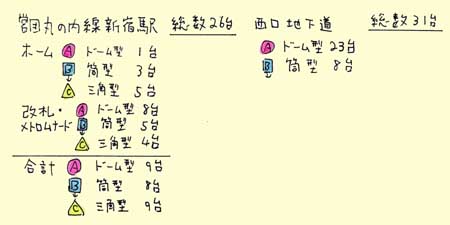 営団丸の内線新宿駅 総数26台
ホーム A ドーム型 1台
B 筒型 3台
C 三角型 5台
改札・メトロムナード A ドーム型 8台
B 筒型 5台
C 三角型 4台
合計 A ドーム型 9台
B 筒型 8台
C 三角型 9台
西口地下道 総数31台
A ドーム型 23台
B 筒型 8台